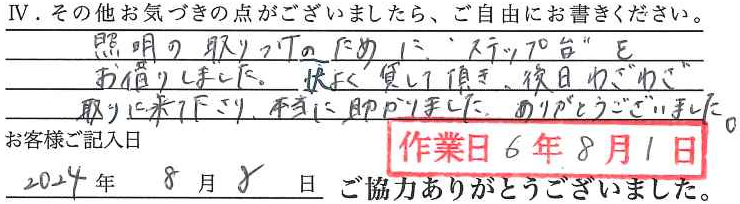 Ⅳ．その他お気づきの点がございましたら、ご自由にお書きください。
照明の取りつけのために、"ステップ台"を
お借りしました。快よく貸して頂き、後日わざわざ
取りに来て下さり、本当に助かりました。ありがとうございました。
お客様ご記入日
作業日6年8月1日
2024年 8月8日 ご協力ありがとうございました。